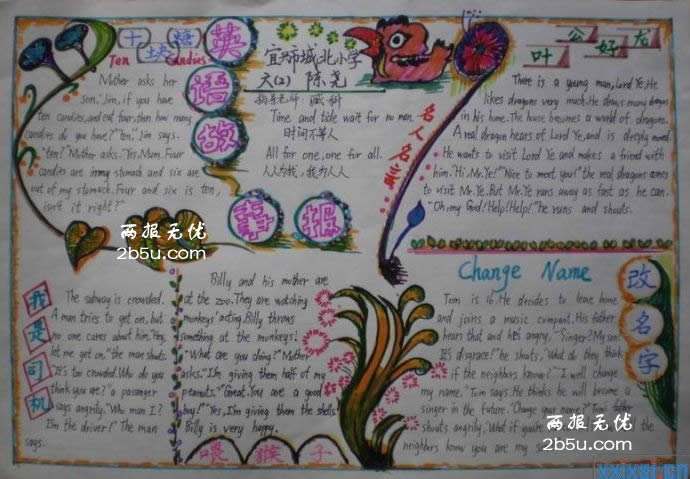 十块糖
Ten Candies
Mother asks her
son, "Jim, if you have
ten candies, and eat four, then how many
candies do you have?" "Ten," Jim says.
"Ten?" Mother asks. "Yes, Mum. Four
candies are in my stomach and six are
out of my stomach. Four and six is ten,
isn't it right?"
英语故事报
宜城城北小学
六(2) 陈尧
指导老师
Time and tide wait for no man.
时间不等人
All for one, one for all.
人人为我,我为人人
名人名言
叶公好龙
There is a young man, Lord Ye. He
likes dragons very much. He draws many dragons
in his home. The house becomes a world of dragons.
A real dragon hears of Lord Ye, and is deeply moved.
He wants to visit Lord Ye and makes a friend with
him. "Hi, Mr. Ye!" "Nice to meet you!" the real dragon comes
to visit Mr. Ye. But Mr. Ye runs away as fast as he can.
"Oh my God! Help! Help!" he runs and shouts.
两报无优
2b5u.com
我是司机
The subway is crowded.
A man tries to get on, but
no one cares about him. "Hey,
let me get on," the man shouts.
"It's too crowded. Who do you
think you are?" a passenger
says angrily. "Who am I?
I'm the driver!" The man
says.
Billy and his mother are
at the zoo. They are watching
monkeys' acting. Billy throws
something at the monkeys!
"What are you doing?" Mother
asks. "I'm giving them half of my
peanuts." "Great. You are a good
boy!" "Yes, I'm giving them the shells!"
Billy is very happy.
喂猴子
Change Name
改名字
Tom is 16. He decides to leave home
and joins a music company. His father
hears that and he's angry, "Singer? My son?
It's disgrace!" he shouts, "What do they think
if the neighbors know?" "I will change
my name." Tom says. He thinks he will become a
singer in the future. "Change your name?" Tom's father
shouts angrily, "What if you're the
neighbors know you are my
两报无优
2b5u.com